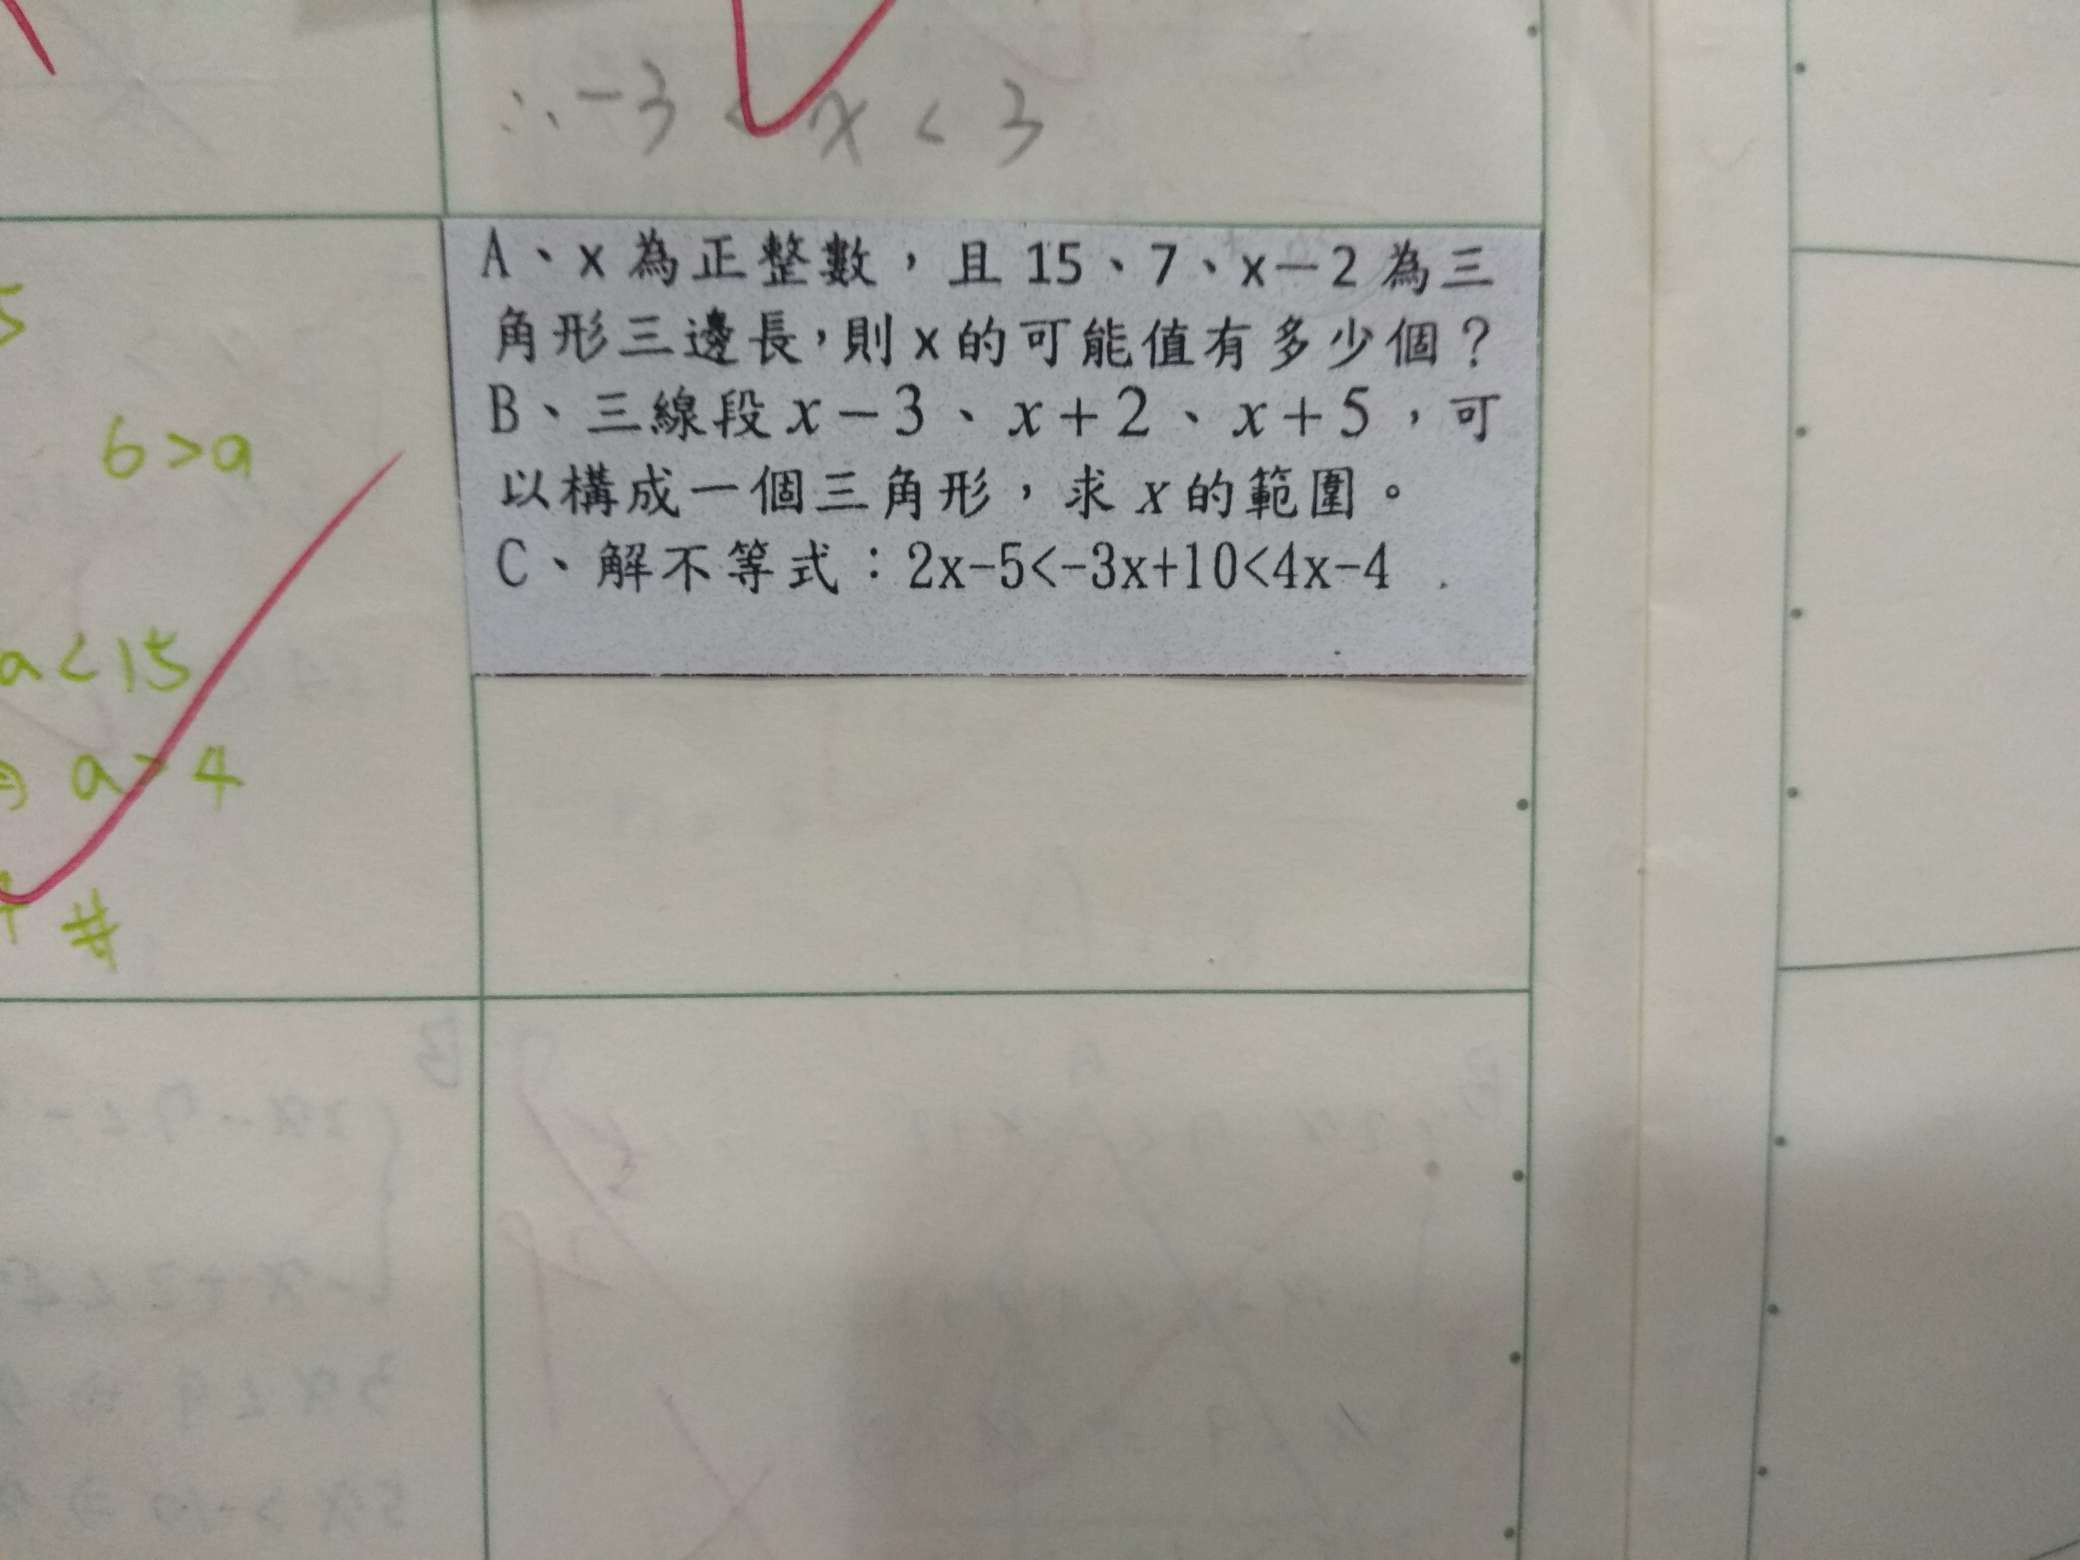 ∴ -3 < x < 3
5
6>a
a<15
a>4
#
A、x 為正整數，且 15、7、x－2 為三
角形三邊長，則 x 的可能值有多少個？
B、三線段 x－3、x＋2、x＋5，可
以構成一個三角形，求 x 的範圍。
C、解不等式：2x-5<-3x+10<4x-4